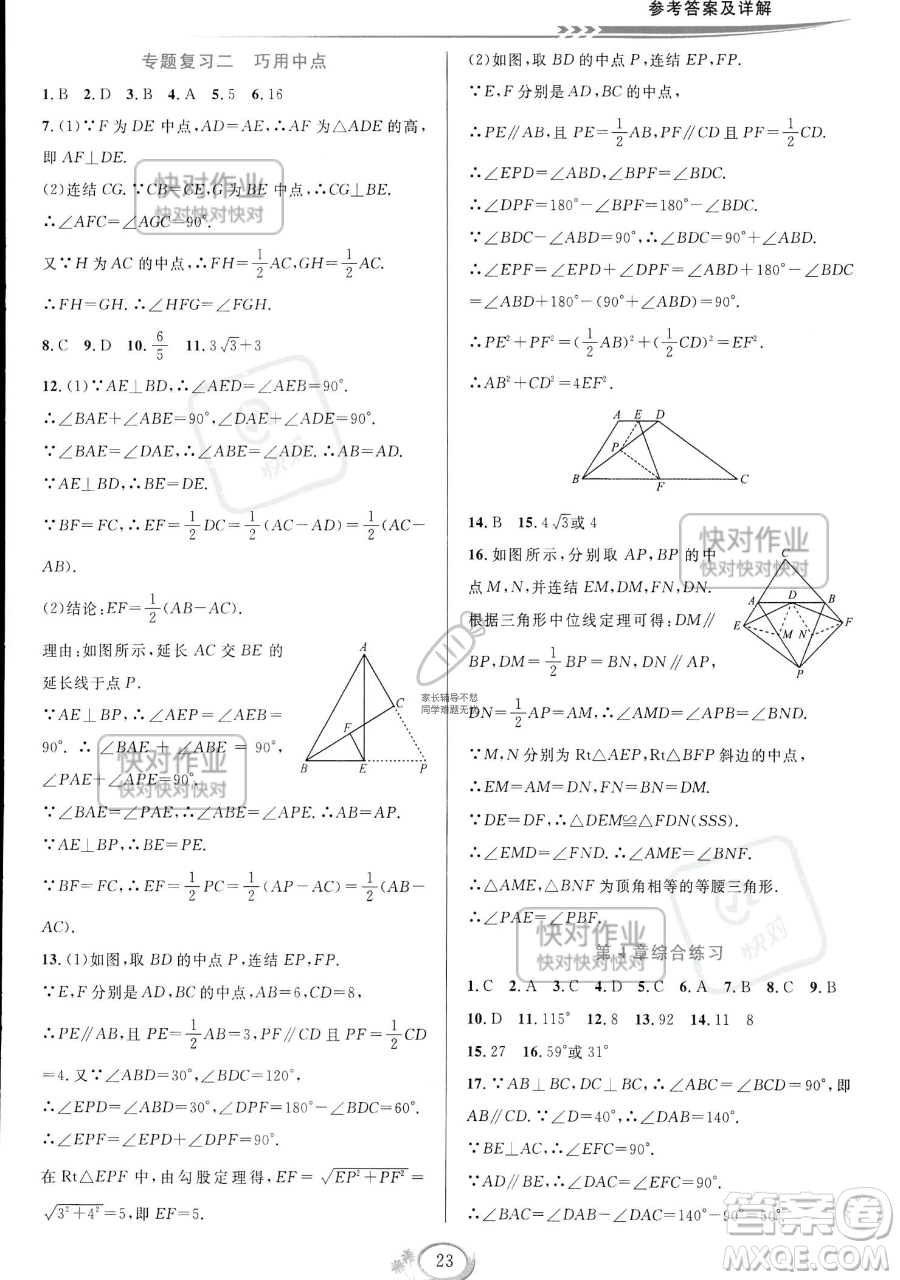 参考答案及详解
专题复习二 巧用中点
1.B 2.D 3.B 4.A 5.5 6.16
7.(1)∵F 为 DE 中点,AD=AE,∴AF 为△ADE 的高,
即 AF⊥DE.
(2)连结 CG.∵CB=CE,G 为 BE 中点,∴CG⊥BE.
∴∠AFC=∠AGC=90°.
又∵H 为 AC 的中点,∴FH=1/2AC,GH=1/2AC.
∴FH=GH.∴∠HFG=∠FGH.
8.C 9.D 10.6/5 11.3√3+3
12.(1)∵AE⊥BD,∴∠AED=∠AEB=90°.
∴∠BAE+∠ABE=90°,∠DAE+∠ADE=90°.
∵∠BAE=∠DAE,∴∠ABE=∠ADE.∴AB=AD.
∵AE⊥BD,∴BE=DE.
∵BF=FC,∴EF=1/2DC=1/2(AC-AD)=1/2(AC-
AB).
(2)结论:EF=1/2(AB-AC).
理由:如图所示,延长 AC 交 BE 的
延长线于点 P.
∵AE⊥BP,∴∠AEP=∠AEB=
90°.∴∠BAE+∠ABE=90°,
∠PAE+∠APE=90°.
∵∠BAE=∠PAE,∴∠ABE=∠APE.∴AB=AP.
∵AE⊥BP,∴BE=PE.
∵BF=FC,∴EF=1/2PC=1/2(AP-AC)=1/2(AB-
AC).
A
C
F
B E P
13.(1)如图,取 BD 的中点 P,连结 EP,FP.
∵E,F 分别是 AD,BC 的中点,AB=6,CD=8,
∴PE∥AB,且 PE=1/2AB=3,PF∥CD 且 PF=1/2CD
=4.又∵∠ABD=30°,∠BDC=120°,
∴∠EPD=∠ABD=30°,∠DPF=180°-∠BPF=60°.
∴∠EPF=∠EPD+∠DPF=90°.
在 Rt△EPF 中,由勾股定理得,EF=√(EP²+PF²)=
√(3²+4²)=5,即 EF=5.
(2)如图,取 BD 的中点 P,连结 EP,FP.
∵E,F 分别是 AD,BC 的中点,
∴PE∥AB,且 PE=1/2AB,PF∥CD 且 PF=1/2CD.
∴∠EPD=∠ABD,∠BPF=∠BDC.
∴∠DPF=180°-∠BPF=180°-∠BDC.
∵∠BDC-∠ABD=90°,∴∠BDC=90°+∠ABD.
∴∠EPF=∠EPD+∠DPF=∠ABD+180°-∠BDC
=∠ABD+180°-(90°+∠ABD)=90°.
∴PE²+PF²=(1/2AB)²+(1/2CD)²=EF².
∴AB²+CD²=4EF².
A E D
P
B F C
14.B 15.4√3或 4
16.如图所示,分别取 AP,BP 的中
点 M,N,并连结 EM,DM,FN,DN.
根据三角形中位线定理可得:DM∥
BP,DM=1/2BP=BN,DN∥AP,
DN=1/2AP=AM,∴∠AMD=∠APB=∠BND.
∵M,N 分别为 Rt△AEP,Rt△BFP 斜边的中点,
∴EM=AM=DN,FN=BN=DM.
∵DE=DF,∴△DEM≌△FDN(SSS).
∴∠EMD=∠FND.∴∠AME=∠BNF.
∴△AME,△BNF 为顶角相等的等腰三角形.
∴∠PAE=∠PBF.
C
A D B
E M N F
P
第 4 章综合练习
1.C 2.A 3.B 4.B 5.C 6.A 7.A 8.C 9.B
10.D 11.115° 12.8 13.92 14.11 8
15.27 16.59°或 31°
17.∵AB⊥BC,DC⊥BC,∴∠ABC+∠DCB=90°,即
AB∥CD.∵∠D=40°,∴∠DAB=140°.
∵BE⊥AC,∴∠EFC=90°.
∵∠DAC=∠EFC,∴∠DAC=90°,
∴∠BAC=∠DAB-∠DAC=140°-90°=50°.
快对作业
快对快对快对
快对
快对作业
快对快对快对
家长辅导不愁
同学难题无忧
快对作业
快对快对快对
快对作业
快对快对快对
快对
23
答案圈
MXQE.COM